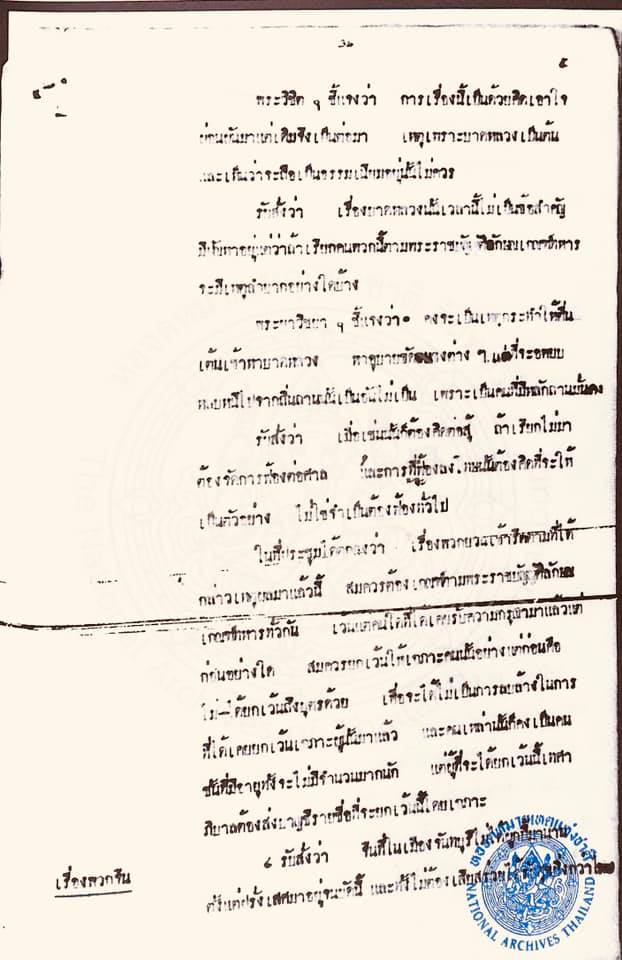 ๕
พระวิจิต ฯ ชี้แจงว่า การเรื่องนี้เป็นด้วยคิดเอาใจ
ผ่อนผันมาแต่เดิมจึงเป็นต่อมา เหตุเพราะบาดหลวงเป็นต้น
และเห็นว่าจะถือเป็นธรรมเนียมอยู่นั้นไม่ควร
รับสั่งว่า เรื่องบาดหลวงนั้นเวลานี้ไม่เป็นข้อสำคัญ
มีปัญหาอยู่แต่ว่าถ้าเรียกคนพวกนี้ตามพระราชบัญญัติลักษณเกณฑ์ทหาร
จะมีเหตุลำบากอย่างใดบ้าง
พระยาวิชยา ฯ ชี้แจงว่า คงจะเป็นเหตุกระทำให้ตื่น
เต้นเข้าหาบาดหลวง หาอุบายขัดขวางต่าง ๆ แต่ที่จะอพยบ
หลบหนีไปจากถิ่นถานนั้นเป็นอันไม่เป็น เพราะเป็นคนที่มีหลักถานมั่นคง
รับสั่งว่า เมื่อเช่นนั้นก็ต้องคิดต่อสู้ ถ้าเรียกไม่มา
ต้องจัดการฟ้องต่อศาล และการที่ฟ้องลงโทษนั้นต้องคิดที่จะให้
เป็นตัวอย่าง ไม่ใช่จำเป็นต้องฟ้องทั่วไป
ในที่ประชุมได้ตกลงว่า เรื่องพวกญวนเข้ารีตตามที่ได้
กล่าวเหตุผลมาแล้วนี้ สมควรต้องเกณฑ์ตามพระราชบัญญัติลักษณ
เกณฑ์ทหารทั่วกัน เว้นแต่คนใดที่ได้เคยรับความกรุณามาแล้วแต่
ก่อนอย่างใด สมควรยกเว้นให้เฉพาะคนนั้นอย่างแต่ก่อนคือ
ไม่ได้ยกเว้นถึงบุตรด้วย เพื่อจะได้ไม่เป็นการลบล้างในการ
ที่ได้เคยยกเว้นเฉพาะผู้นั้นมาแล้ว และคนเหล่านั้นก็คงเป็นคน
ชั้นที่มีอายุทั้งจะไม่มีจำนวนมากนัก แต่ผู้ที่จะได้ยกเว้นนี้เทศา
ภิบาลต้องส่งบาญชีรายชื่อที่จะยกเว้นนี้โดยเฉพาะ
เรื่องพวกจีน
๔ รับสั่งว่า จีนที่ในเมืองจันทบุรีไม่ได้ผูกปี้มานาน
ตั้งแต่ฝรั่งเศสมาอยู่จนบัดนี้ และทั้งไม่ต้องเสีย
หอจดหมายเหตุแห่งชาติ
NATIONAL ARCHIVES THAILAND